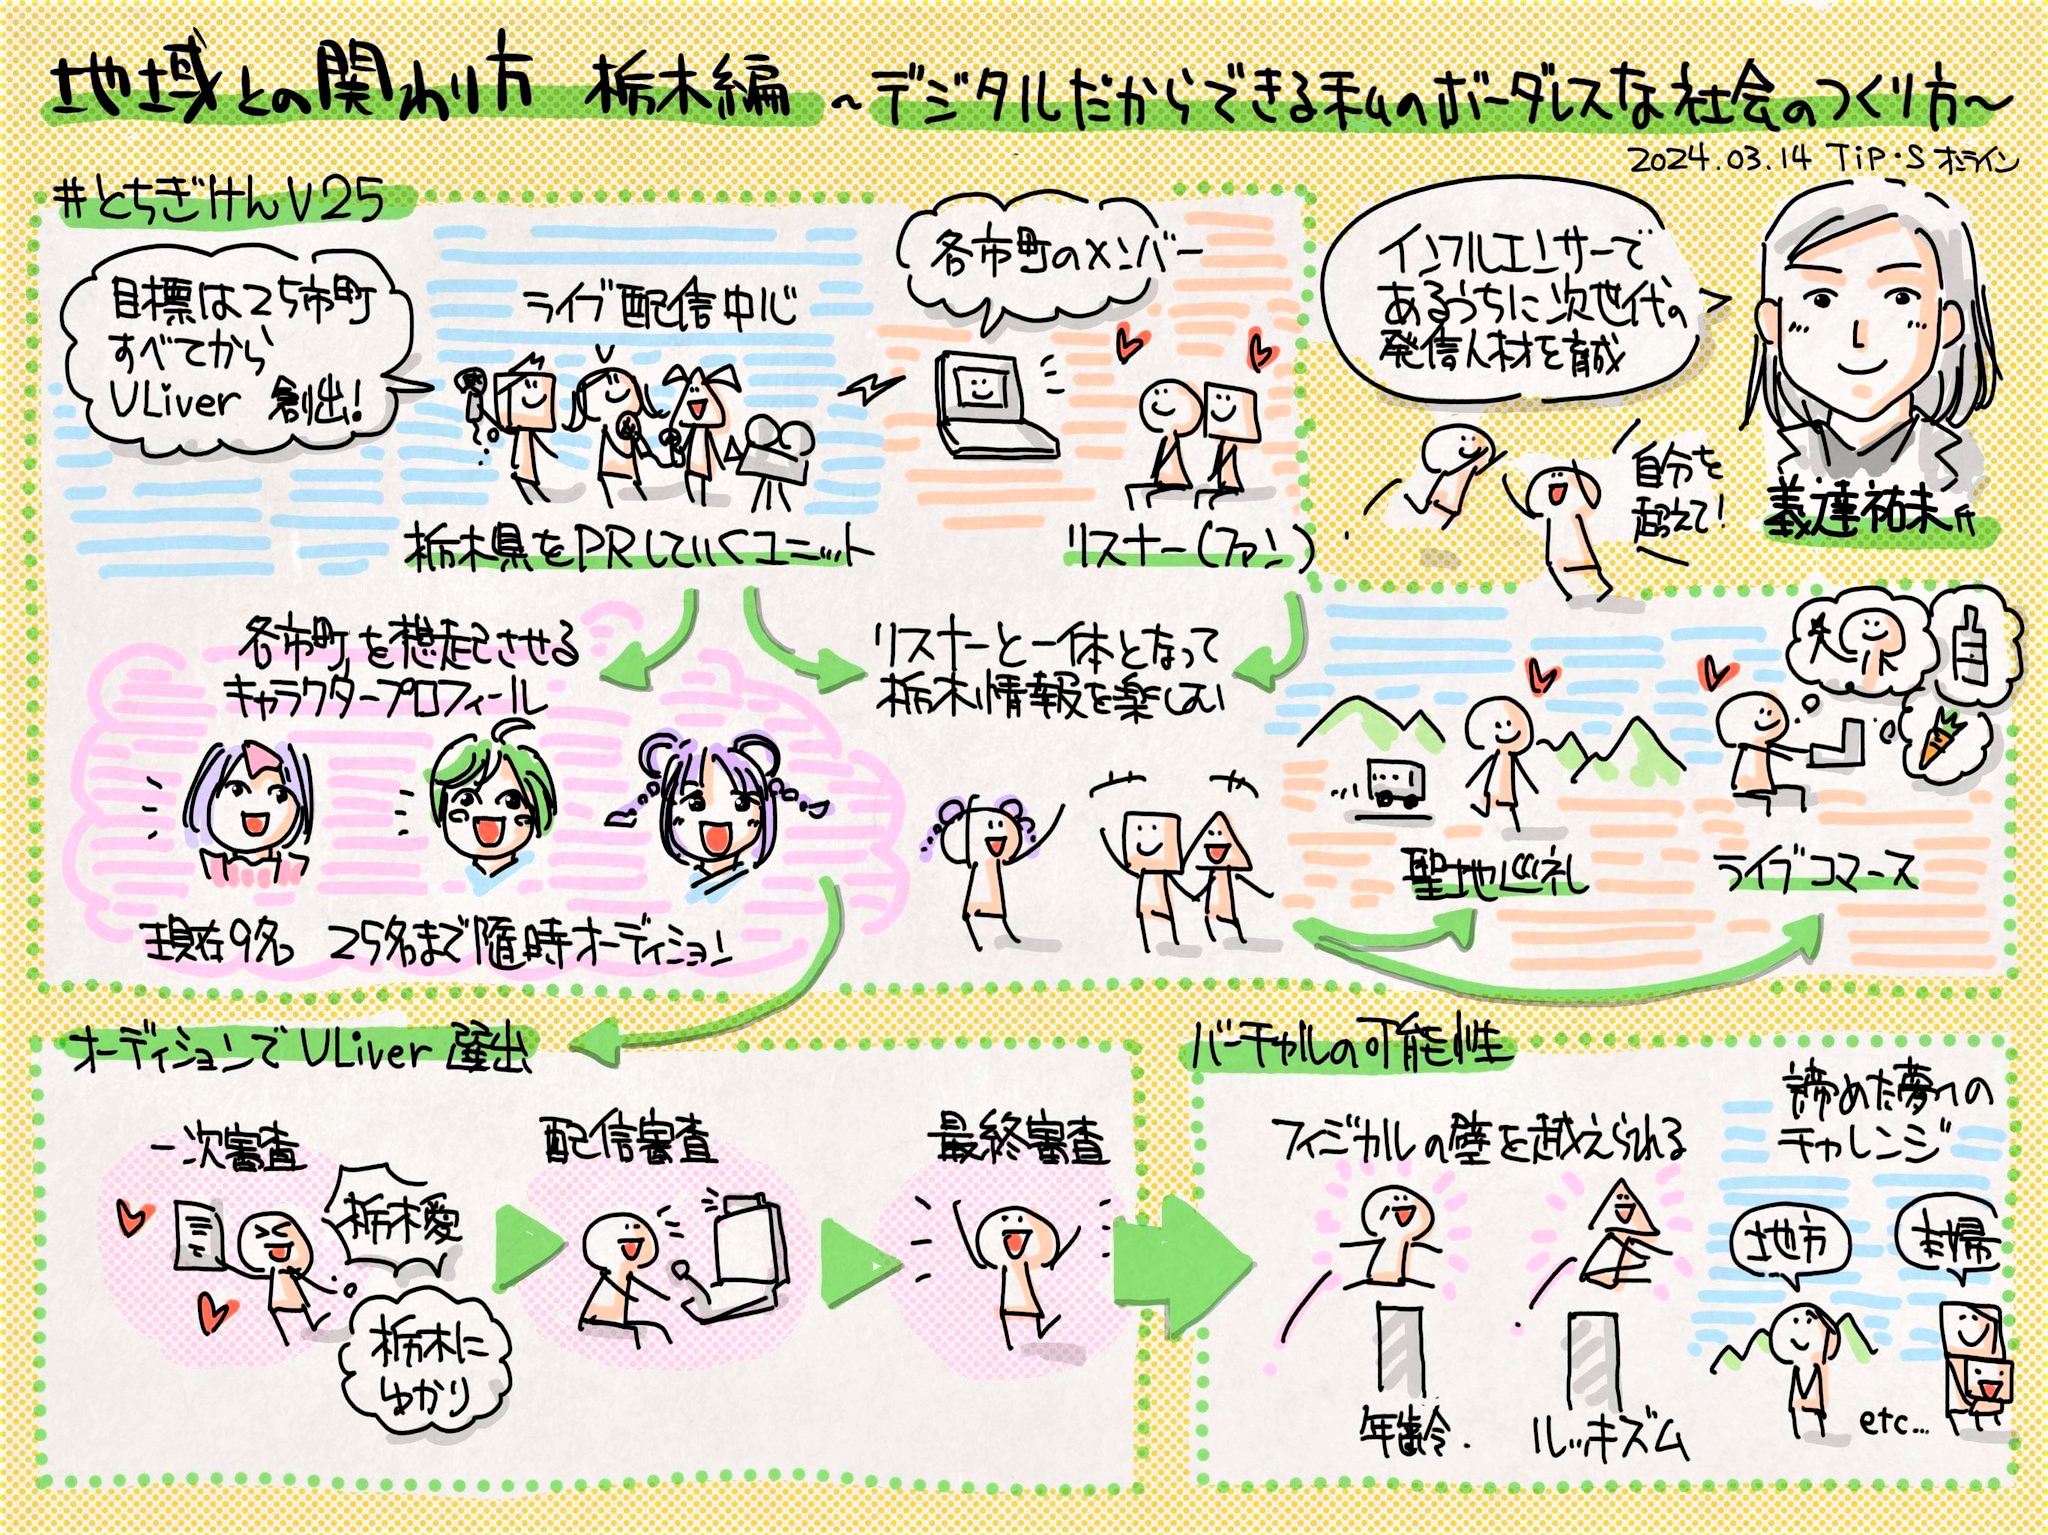 地域との関わり方 栃木編 ~デジタルだからできる私のボーダレスな社会のつくり方~
2024.03.14 TiP・S オンライン
#とちぎけんV25
目標は25市町
すべてから
VLiver 創出!
ライブ配信中心
各市町のメンバー
栃木県をPRしていくユニット
リスナー(ファン)
インフルエンサーで
あるうちに次世代の
発信人材を育成
自分を
超えて!
義達祐未氏
各市町を想起させる
キャラクタープロフィール
現在9名 25名まで随時オーディション
リスナーと一体となって
栃木情報を楽しむ
聖地巡礼
ライブコマース
オーディションでVLiver選出
一次審査
栃木愛
栃木に
ゆかり
配信審査
最終審査
バーチャルの可能性
フィジカルの壁を越えられる
年齢
ルッキズム
諦めた夢への
チャレンジ
地方
主婦
etc...